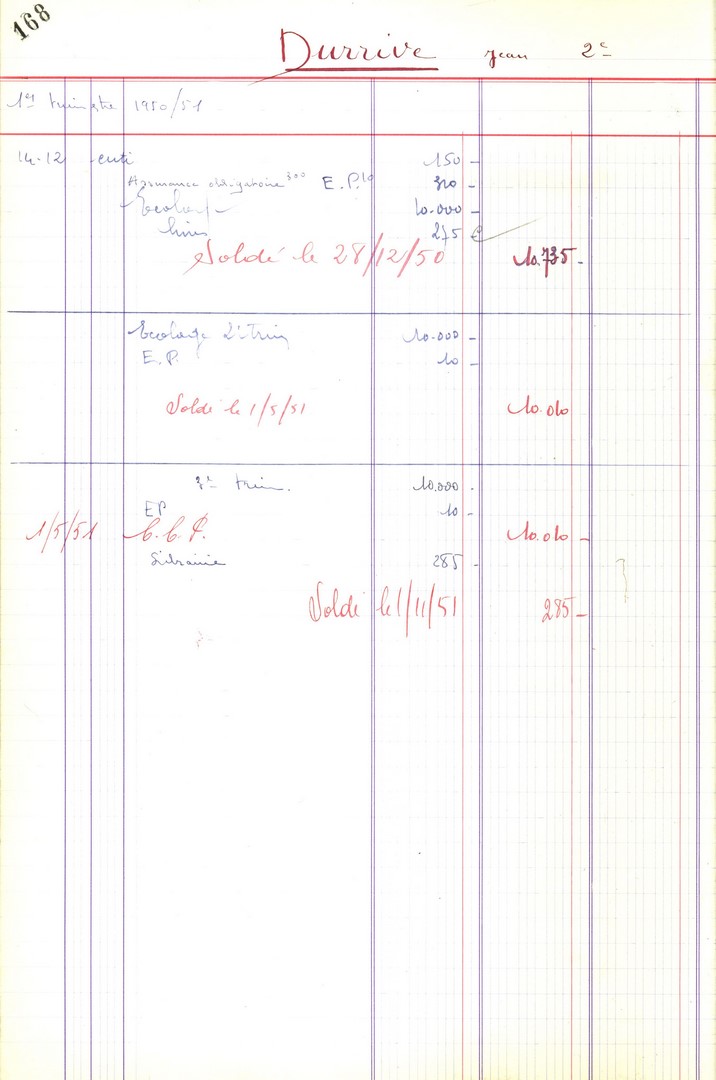 168
Durrive Jean 2e
1er trimestre 1950/51
14-12 cuti 150 -
Assurance obligatoire 300 E.P. 10 310 -
Ecolage 10.000 -
livres 275
Soldé le 28/12/50 10.735 -
Ecolage 2e trim 10.000 -
E.P. 10 -
Soldé le 1/5/51 10.010
3e trim. 10.000 -
EP 10 -
1/5/51 C.C.P. 10.010 -
Librairie 285 -
Soldé le 1/11/51 285 -